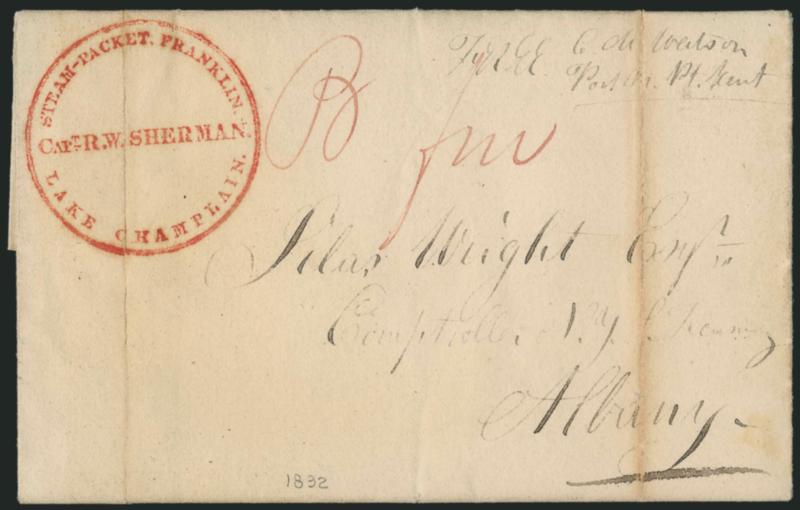 STEAM-PACKET, FRANKLIN.
CAPT. R.W. SHERMAN.
LAKE CHAMPLAIN.
Free
Postmr. Pt. Kent
Silas Wright Esqr
Comptroller N.Y.
Albany
1832